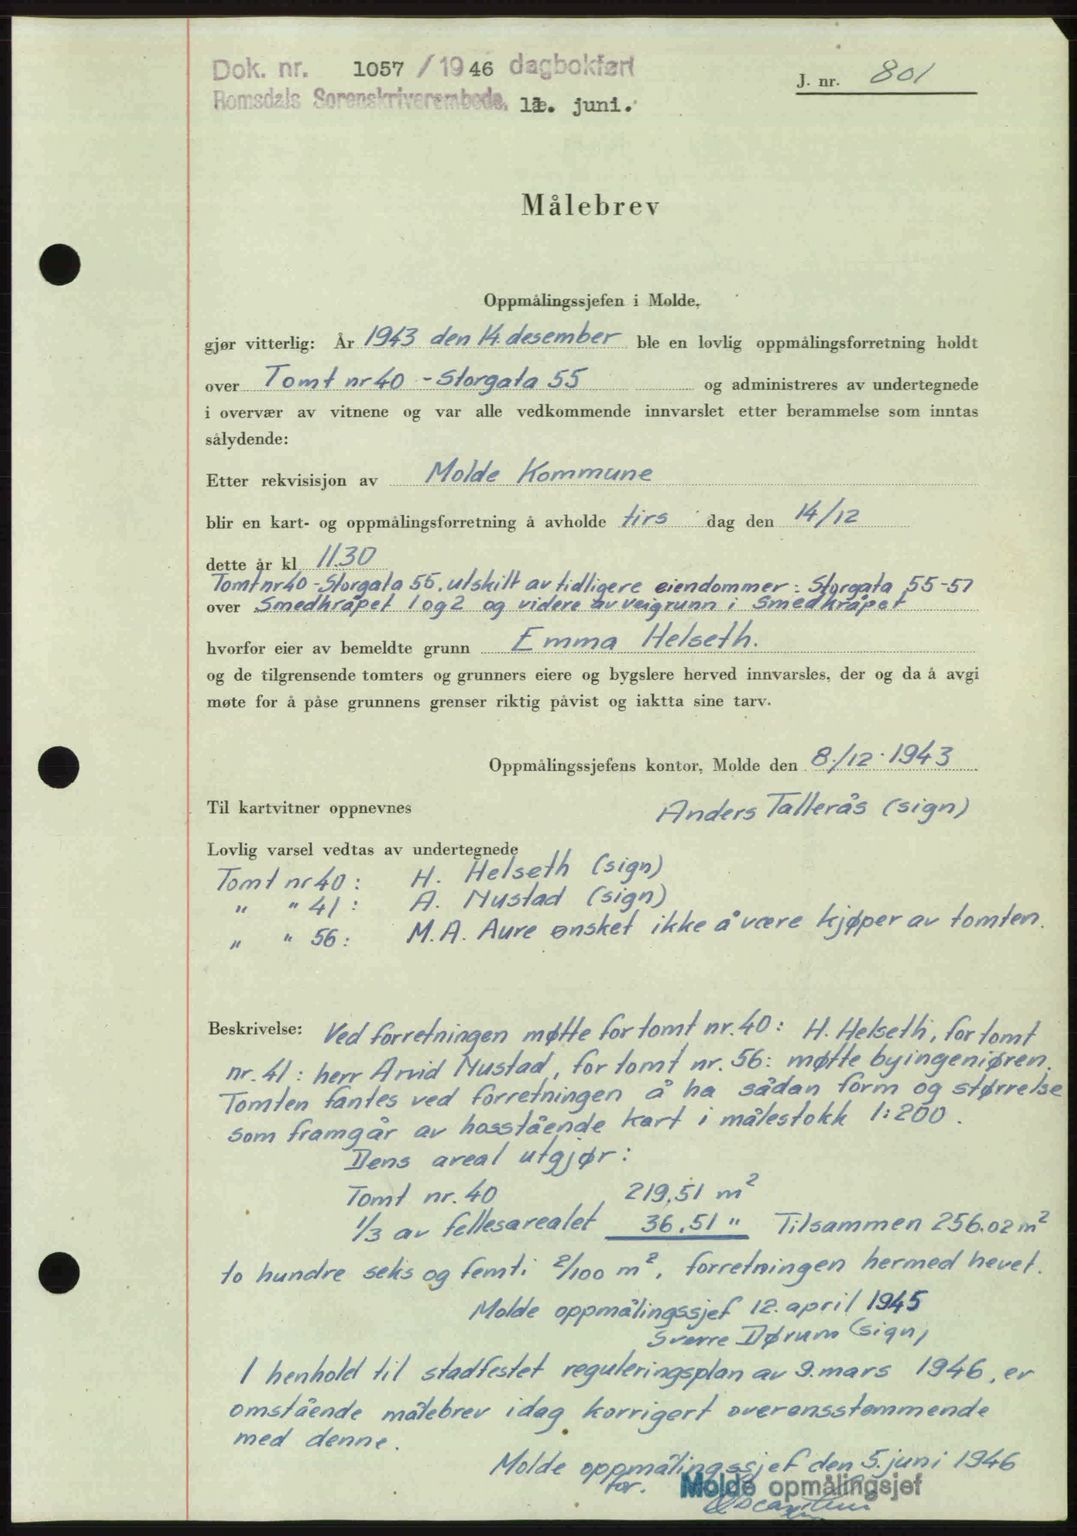 Dok. nr. 1057 / 1946 dagbokført
J. nr. 801
Romsdals Sorenskriverembede, 11. juni.
Målebrev
Oppmålingssjefen i Molde,
gjør vitterlig: År 1943 den 14. desember ble en lovlig oppmålingsforretning holdt
over Tomt nr 40 - Storgata 55 og administreres av undertegnede
i overvær av vitnene og var alle vedkommende innvarslet etter berammelse som inntas
sålydende:
Etter rekvisisjon av Molde Kommune
blir en kart- og oppmålingsforretning å avholde tirs dag den 14/12
dette år kl. 11.30
Tomt nr 40 - Storgata 55, utskilt av tidligere eiendommer: Storgata 55-57
over Smedkråpet 1 og 2 og videre av veigrunn i Smedkråpet
hvorfor eier av bemeldte grunn Emma Helseth.
og de tilgrensende tomters og grunners eiere og bygslere herved innvarsles, der og da å avgi
møte for å påse grunnens grenser riktig påvist og iaktta sine tarv.
Oppmålingssjefens kontor, Molde den 8./12. 1943
Til kartvitner oppnevnes
Anders Tallerås (sign)
Lovlig varsel vedtas av undertegnede
Tomt nr 40: H. Helseth (sign)
" " 41: A. Nustad (sign)
" " 56: M.A. Aure ønsket ikke å være kjøper av tomten.
Beskrivelse: Ved forretningen møtte for tomt nr. 40: H. Helseth, for tomt
nr. 41: herr Arvid Nustad, for tomt nr. 56: møtte byingeniøren.
Tomten fantes ved forretningen å ha sådan form og størrelse
som framgår av hosstående kart i målestokk 1:200.
Dens areal utgjør:
Tomt nr. 40 219,51 m²
1/3 av fellesarealet 36,51 " Tilsammen 256.02 m²
to hundre seks og femti 2/100 m², forretningen hermed hevet.
Molde oppmålingssjef 12. april 1945
Sverre Dørum (sign)
I henhold til stadfestet reguleringsplan av 9. mars 1946, er
omstående målebrev idag korrigert overensstemmende
med denne.
Molde oppmålingssjef den 5. juni 1946
for. Molde opmålingsjef